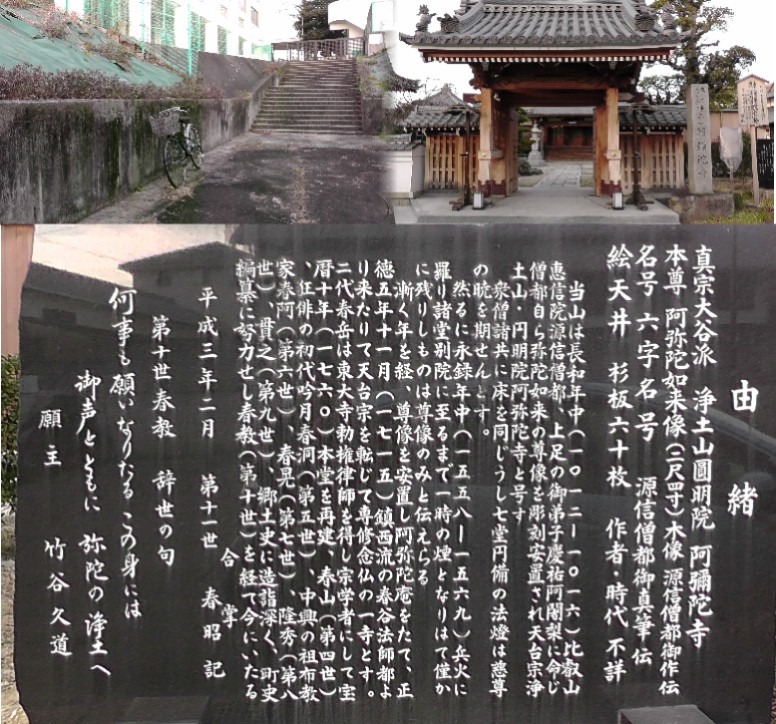 由緒
真宗大谷派 浄土山圓明院 阿彌陀寺
本尊 阿弥陀如来像(二尺四寸)木像 源信僧都御作伝
名号 六字名号 源信僧都御真筆伝
絵天井 杉板六十枚 作者・時代不詳
当山は長和年中(一〇一二ー一〇一六)比叡山
恵信院源信僧都、上足の御弟子慶祐阿闍梨に命じ
僧都自ら弥陀如来の尊像を彫刻安置され天台宗浄
土山・円明院阿弥陀寺と号す
衆僧諸共に床を同じうし七堂円備の法燈は慈尊
の暁を期せんとす。
然るに永録年中(一五五八ー一五六九)兵火に
罹り諸堂別院に至るまで一時の煙となりはて僅か
に残りしものは尊像のみと伝えらる
漸く年を経、尊像を安置し阿弥陀庵をたて、正
徳五年十一月(一七一五)鎮西流の春谷法師都よ
り来たりて天台宗を転じて専修念仏の一寺とす。
二代春岳は東大寺勅権律師を得し宗学者にして宝
暦十年(一七六〇)本堂を再建、春山(第四世)
、狂俳の初代吟月春洞(第五世)、中興の祖布教
家春阿(第六世)、春晃(第七世)、隆秀(第八
世)、貫之(第九世)、郷土史に造詣深く、町史
編纂に努力せし春教(第十世)を経て今にいたる
合掌
平成三年二月 第十一世 春昭 記
第十世春教 辞世の句
何事も願いなりたる この身には
御声とともに 弥陀の浄土へ
願主 竹谷久道